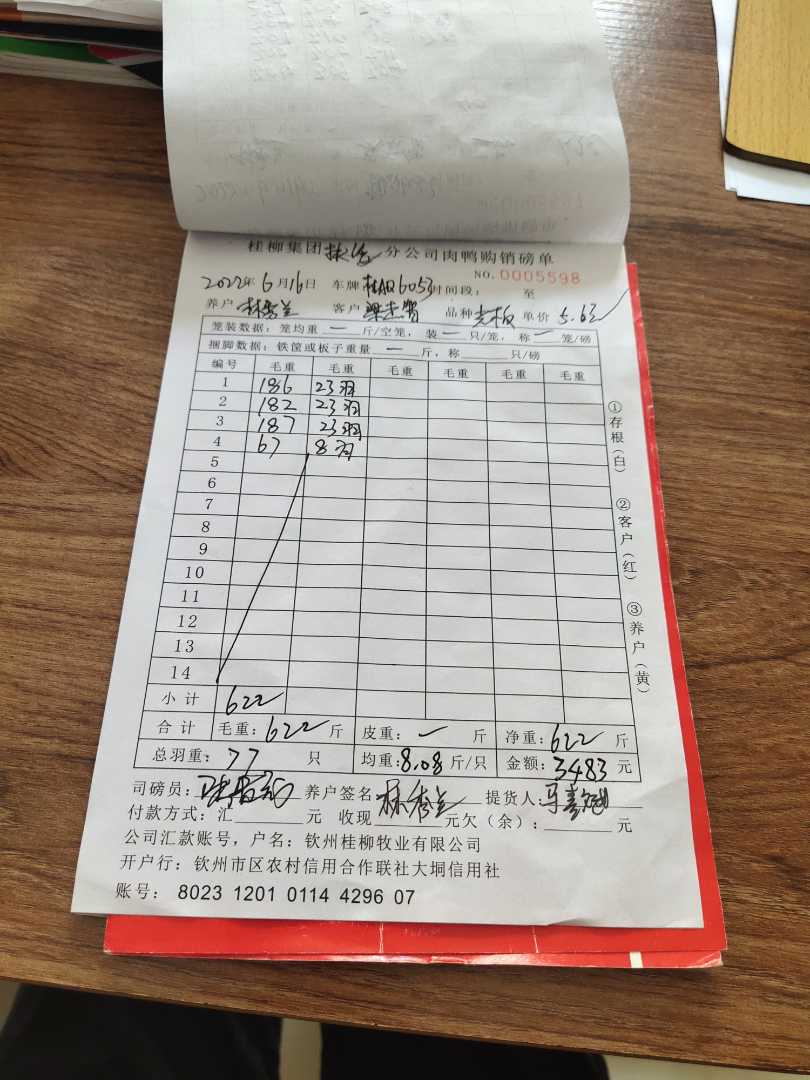 桂柳集团扶绥分公司肉鸭购销磅单
NO.0005598
2022年6月16日 车牌 桂AQ6053 时间段： 至
养户 林秀兰 客户 品种 光板 单价 5.6元
笼装数据：笼均重 一 斤/空笼，装 一 只/笼，称 一 笼/磅
捆脚数据：铁筐或板子重量 一 斤，称 只/磅
编号 毛重 毛重 毛重 毛重 毛重 毛重
1 186 23羽
2 182 23羽
3 187 23羽
4 67 8羽
5
6
7
8
9
10
11
12
13
14
小计 622
合计 毛重：622 斤 皮重：一 斤 净重：622 斤
总羽重：77 只 均重：8.08 斤/只 金额：3483 元
司磅员： 养户签名 林秀兰 提货人：
付款方式：汇 元 收现 元欠（余）： 元
公司汇款账号，户名：钦州桂柳牧业有限公司
开户行：钦州市区农村信用合作联社大垌信用社
账号：8023 1201 0114 4296 07
①存根（白） ②客户（红） ③养户（黄）